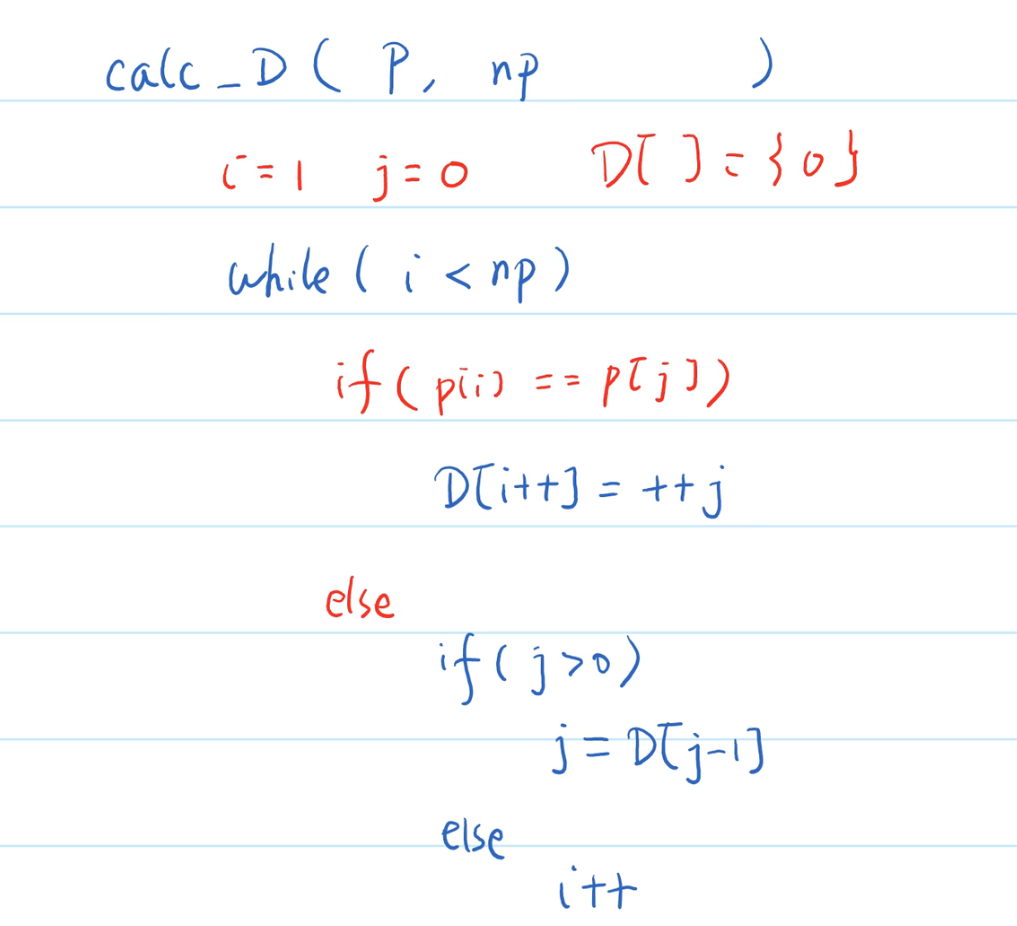 calc_D ( P, np )
i=1 j=0 D[ ]={0}
while ( i < np )
if ( p[i] == p[j] )
D[i++] = ++j
else
if ( j>0 )
j = D[j-1]
else
i++